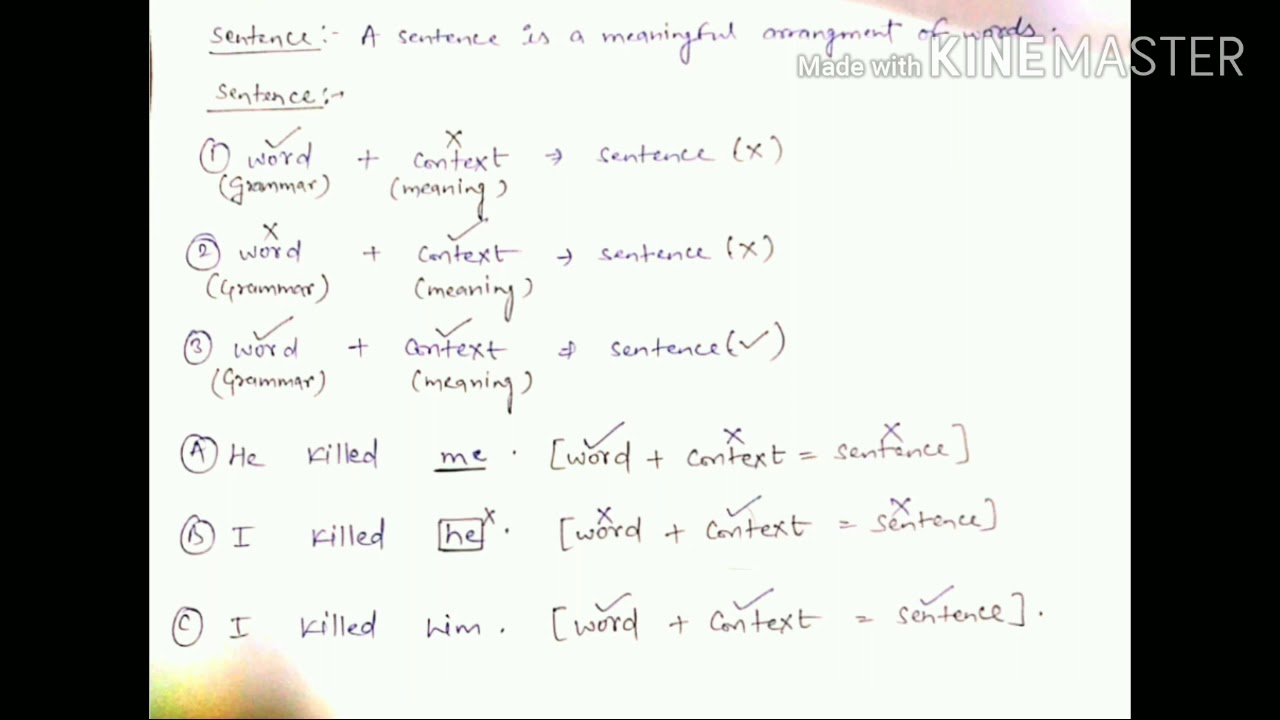 Sentence:- A sentence is a meaningful arrangment of words.
Made with KINEMASTER
Sentence:-
① word ✓ + context x → sentence (x)
(Grammar) (meaning)
② word x + context ✓ → sentence (x)
(Grammar) (meaning)
③ word ✓ + context ✓ ⇒ sentence (✓)
(Grammar) (meaning)
Ⓐ He killed me. [word ✓ + context x = sentence x]
Ⓑ I killed he x. [word x + context ✓ = sentence x]
Ⓒ I killed him. [word ✓ + context ✓ = sentence ✓].